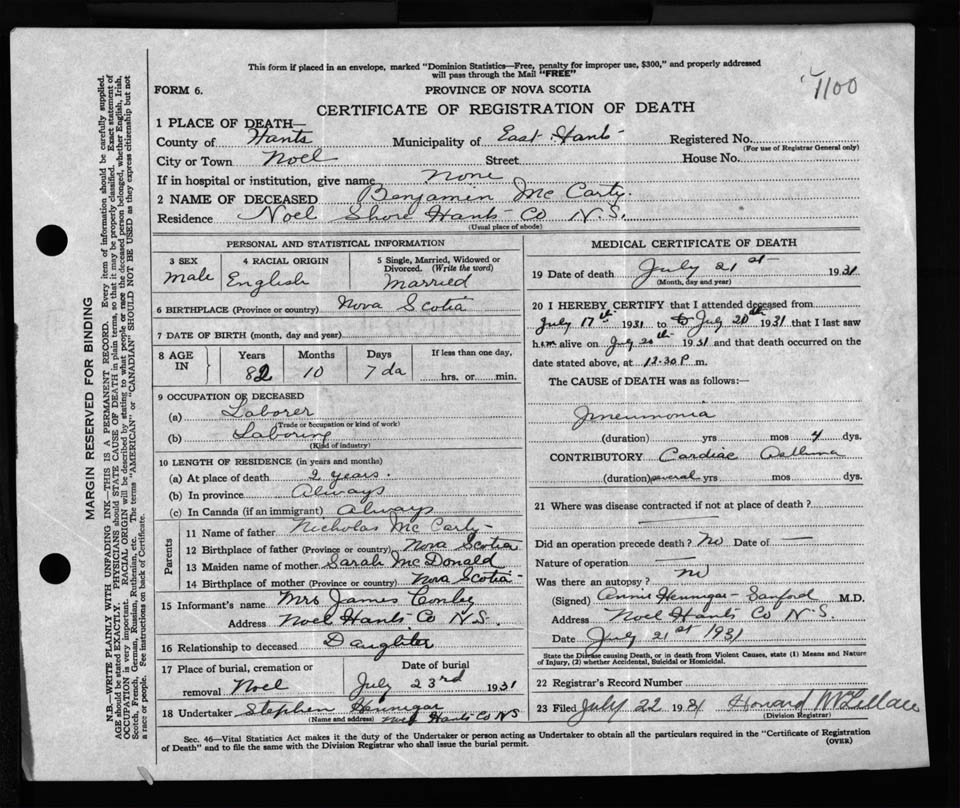 This form if placed in an envelope, marked "Dominion Statistics—Free, penalty for improper use, $300," and properly addressed
will pass through the Mail "FREE"
1100
FORM 6.
PROVINCE OF NOVA SCOTIA
CERTIFICATE OF REGISTRATION OF DEATH
1 PLACE OF DEATH—
County of Hants Municipality of East Hants Registered No.
(For use of Registrar General only)
City or Town Noel Street House No.
If in hospital or institution, give name None
2 NAME OF DECEASED Benjamin Mc Carty.
Residence Noel Shore Hants Co N.S.
(Usual place of abode)
PERSONAL AND STATISTICAL INFORMATION
3 SEX 4 RACIAL ORIGIN 5 Single, Married, Widowed or
Divorced. (Write the word)
Male English Married
6 BIRTHPLACE (Province or country) Nova Scotia
7 DATE OF BIRTH (month, day and year)
8 AGE IN Years Months Days If less than one day,
82 10 7 da hrs. or min.
9 OCCUPATION OF DECEASED
(a) Laborer
(Trade or occupation or kind of work)
(b) Laboring
(Kind of industry)
10 LENGTH OF RESIDENCE (in years and months)
(a) At place of death 2 years.
(b) In province Always
(c) In Canada (if an immigrant) Always
Parents
11 Name of father Nicholas Mc Carty
12 Birthplace of father (Province or country) Nova Scotia
13 Maiden name of mother Sarah McDonald
14 Birthplace of mother (Province or country) Nova Scotia
15 Informant's name Mrs James
Address Noel Hants Co N.S.
16 Relationship to deceased Daughter
17 Place of burial, cremation or Date of burial
removal Noel July 23rd 1931
18 Undertaker Stephen Hennigar
(Name and address) Noel Hants Co NS
MEDICAL CERTIFICATE OF DEATH
19 Date of death July 21st 1931
(Month, day and year)
20 I HEREBY CERTIFY that I attended deceased from
July 17th 1931 to July 20th 1931 that I last saw
him alive on July 20th 1931 and that death occurred on the
date stated above, at 12.30 P m.
The CAUSE of DEATH was as follows:—
Pneumonia
(duration) yrs mos 4 dys.
CONTRIBUTORY Cardiac Asthma
(duration) several yrs mos dys.
21 Where was disease contracted if not at place of death?
Did an operation precede death? No Date of —
Nature of operation —
Was there an autopsy? No
(Signed) Annie Hennigar-Sanford M.D.
Address Noel Hants Co N.S.
Date July 21st 1931
State the Disease causing Death, or in death from Violent Causes, state (1) Means and Nature
of Injury, (2) whether Accidental, Suicidal or Homicidal.
22 Registrar's Record Number
23 Filed July 22 1931 Howard McLellan
(Division Registrar)
Sec. 46—Vital Statistics Act makes it the duty of the Undertaker or person acting as Undertaker to obtain all the particulars required in the "Certificate of Registration
of Death" and to file the same with the Division Registrar who shall issue the burial permit.
(OVER)
MARGIN RESERVED FOR BINDING
N.B.—WRITE PLAINLY WITH UNFADING INK—THIS IS A PERMANENT RECORD. Every item of information should be carefully supplied.
AGE should be stated EXACTLY. PHYSICIANS should STATE CAUSE OF DEATH in plain terms, so that it may be properly classified. Exact statement of
OCCUPATION is very important. RACIAL ORIGIN will be described by stating to what people or race the deceased person belonged, whether English, Irish,
Scotch, French, German, Russian, Ruthenian, etc. The terms "AMERICAN" or "CANADIAN" SHOULD NOT BE USED as they express citizenship but not
a race or people. See instructions on back of Certificate.